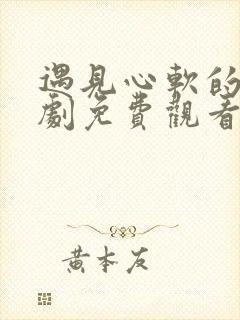 遇見心軟的
劇免費觀看
黄本友